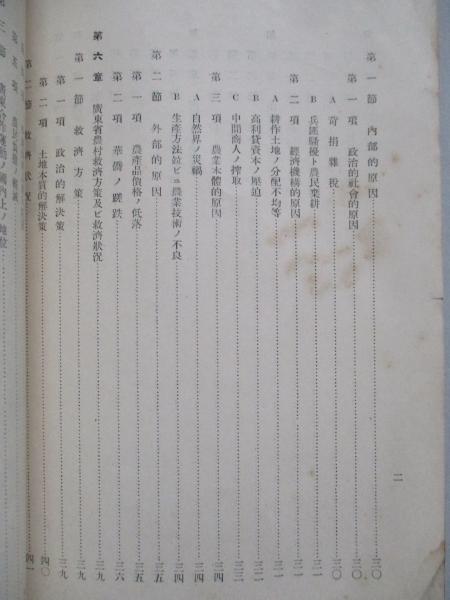 第一節 內部的原因 三〇
第一項 政治的社會的原因 三〇
A 苛捐雜稅 三〇
B 兵匪騷擾ト農民棄耕 三一
第二項 經濟機構的原因 三一
A 耕作土地ノ分配不均等 三一
B 高利貸資本ノ壓迫 三二
C 中間商人ノ搾取 三三
第三項 農業本體的原因 三四
A 自然界ノ災禍 三四
B 生產方法竝ビニ農業技術ノ不良 三四
第二節 外部的原因 三五
第一項 農產品價格ノ低落 三五
第二項 華僑ノ蹉跌 三六
第六章 廣東省農村救濟方策及ビ救濟狀況 三九
第一節 救濟方策 三九
第一項 政治的解決策 三九
第二項 土地本質的解決策 四〇
第二節 救濟狀況 四一
二